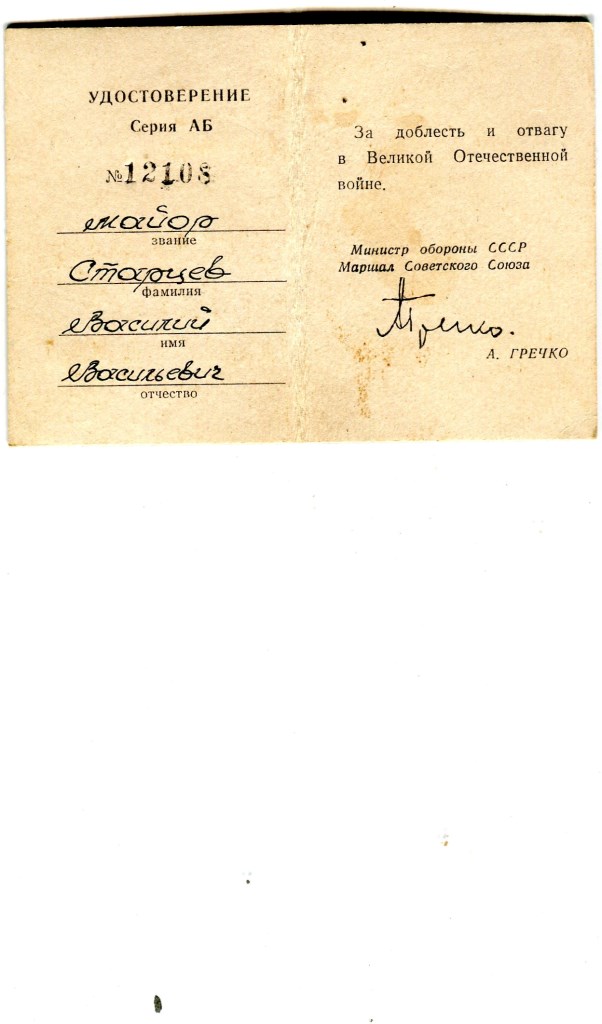 УДОСТОВЕРЕНИЕ
Серия АБ
№12108
майор
звание
Старцев
фамилия
Василий
имя
Васильевич
отчество
За доблесть и отвагу
в Великой Отечественной
войне.
Министр обороны СССР
Маршал Советского Союза
Гречко.
А. ГРЕЧКО